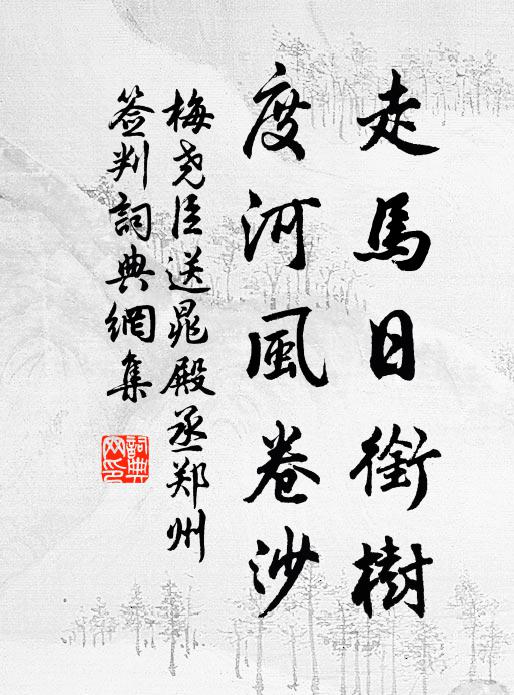 走馬日銜樹
度河風卷沙
梅尧臣送晁殿丞郑州
签判詞典網集
詞典网印